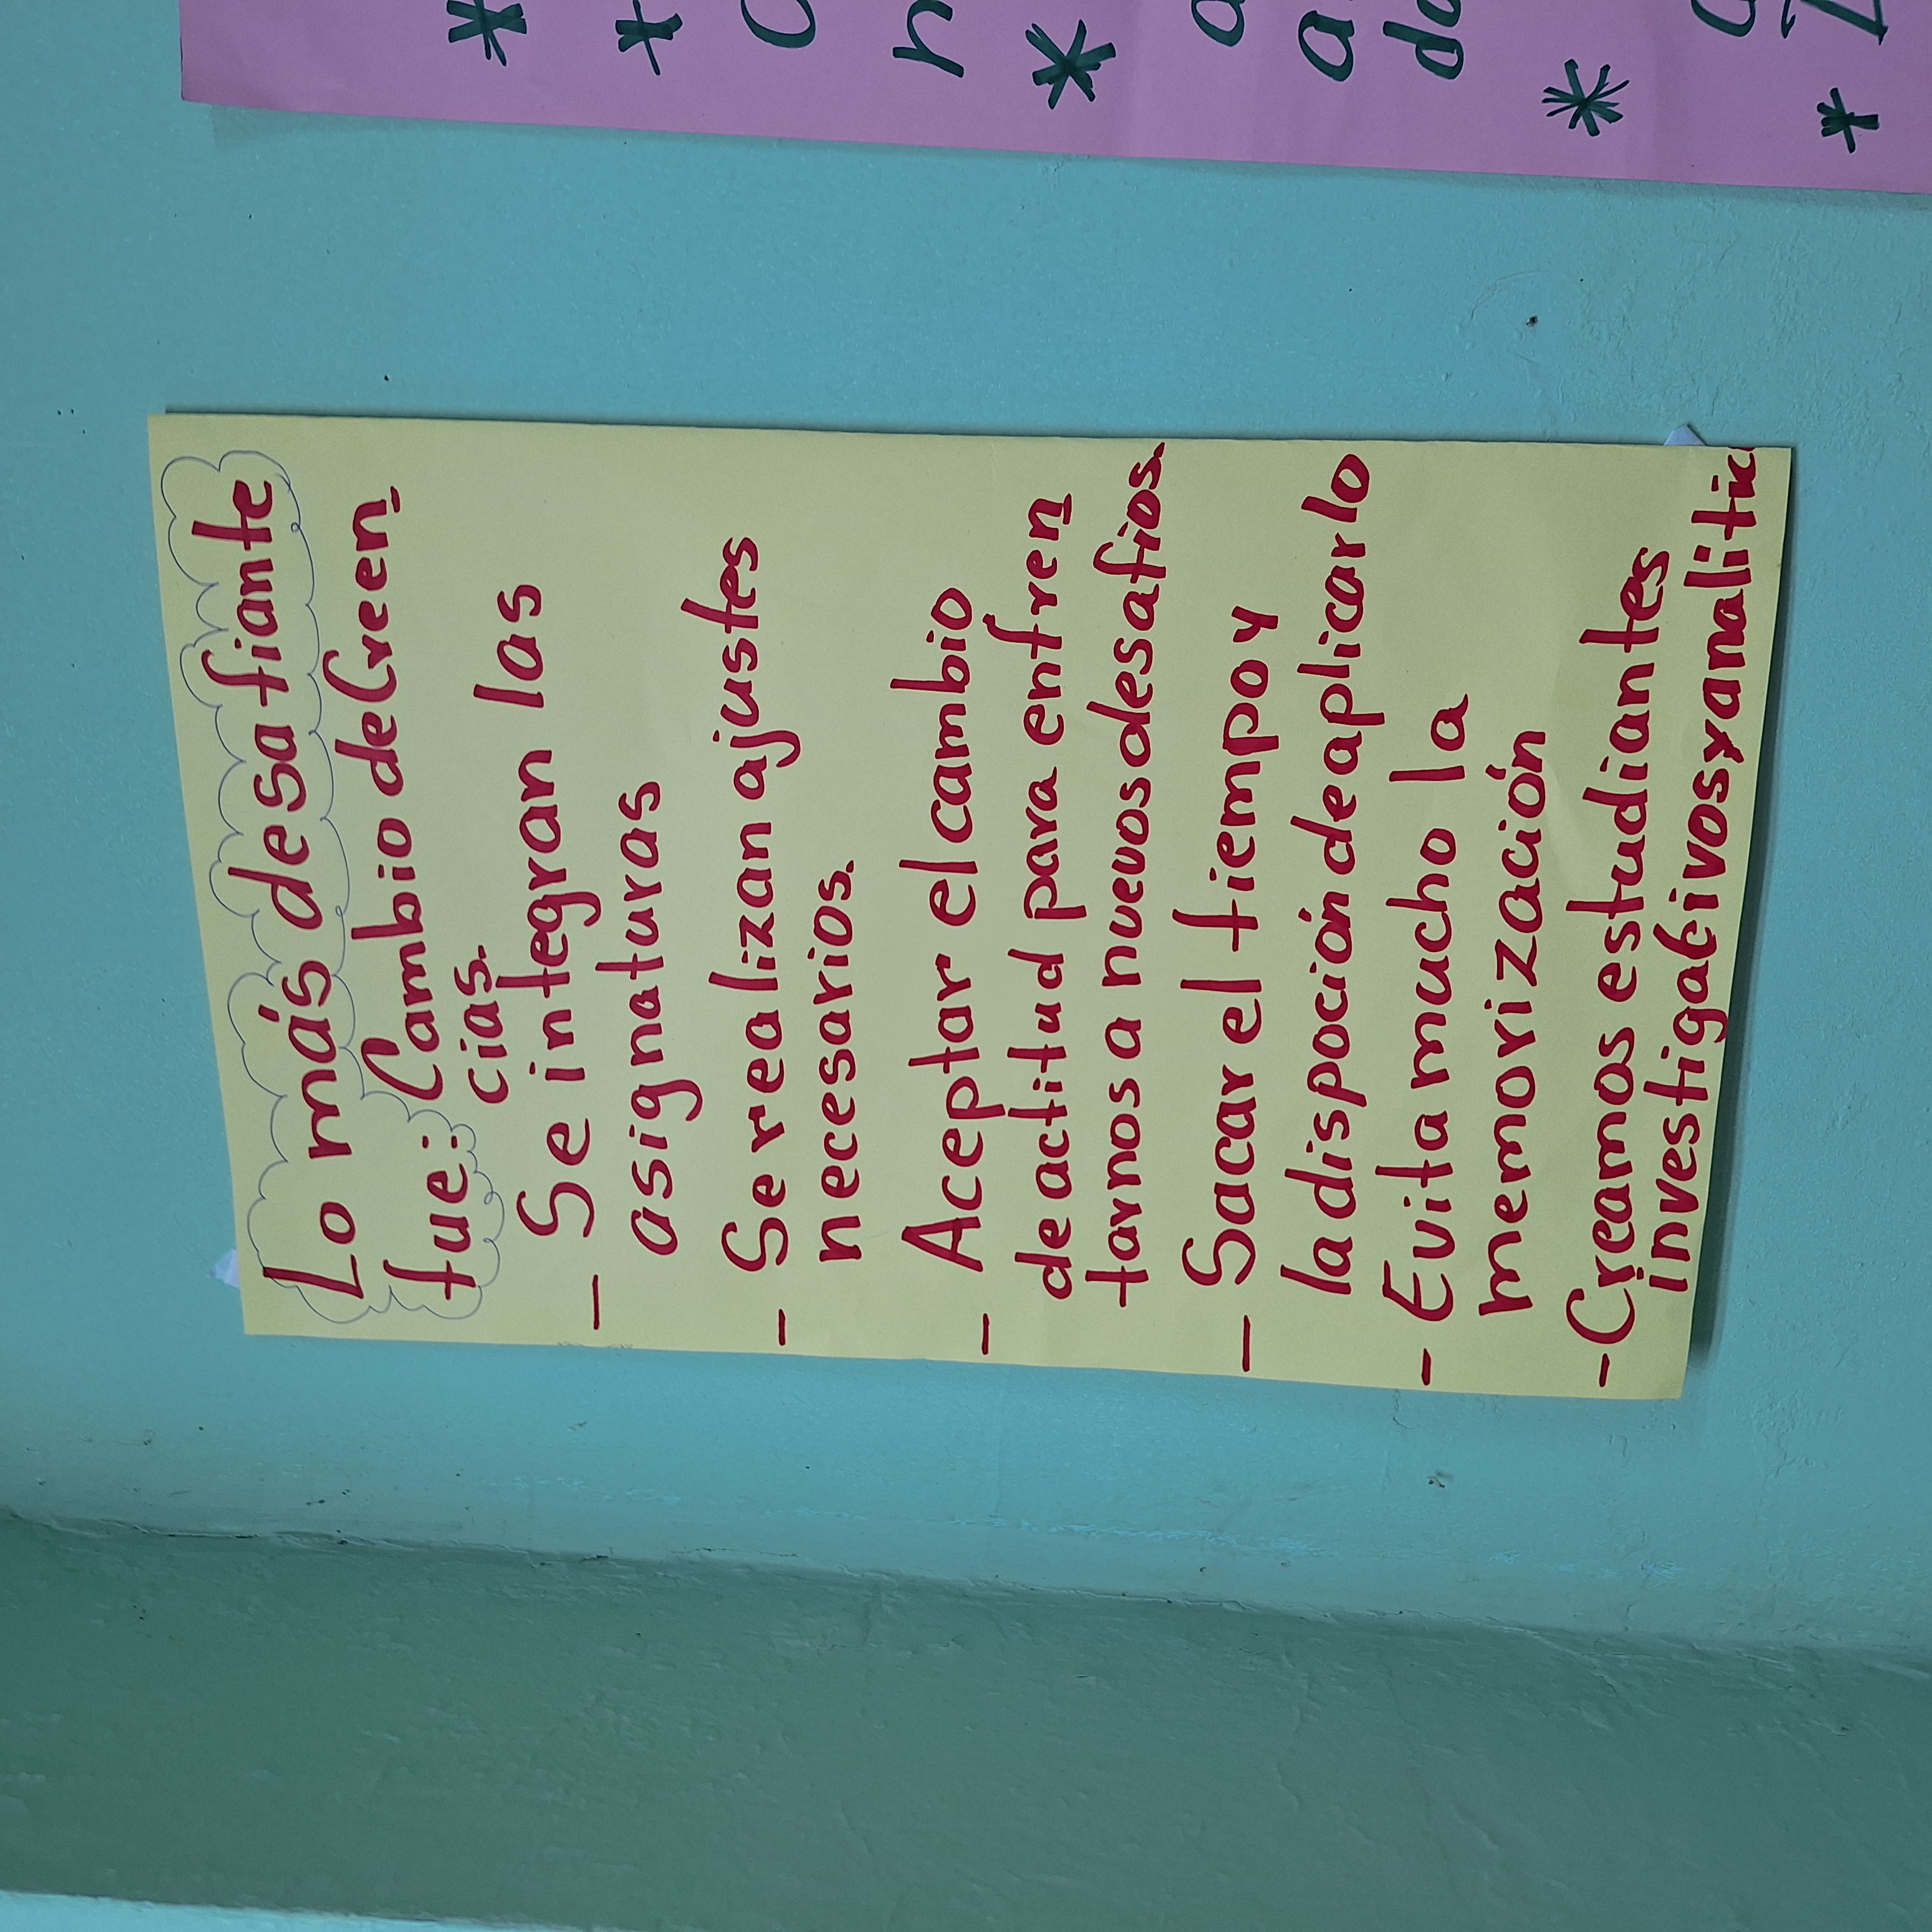 Lo más desafiante
fue: Cambio de Creen
cias.
- Se integran las
asignaturas
- Se realizan ajustes
necesarios.
- Aceptar el cambio
de actitud para enfren
tarnos a nuevos desafios.
- Sacar el tiempo y
la disposción de aplicarlo
- Evita mucho la
memorización
- Creamos estudiantes
investigativos y analitic